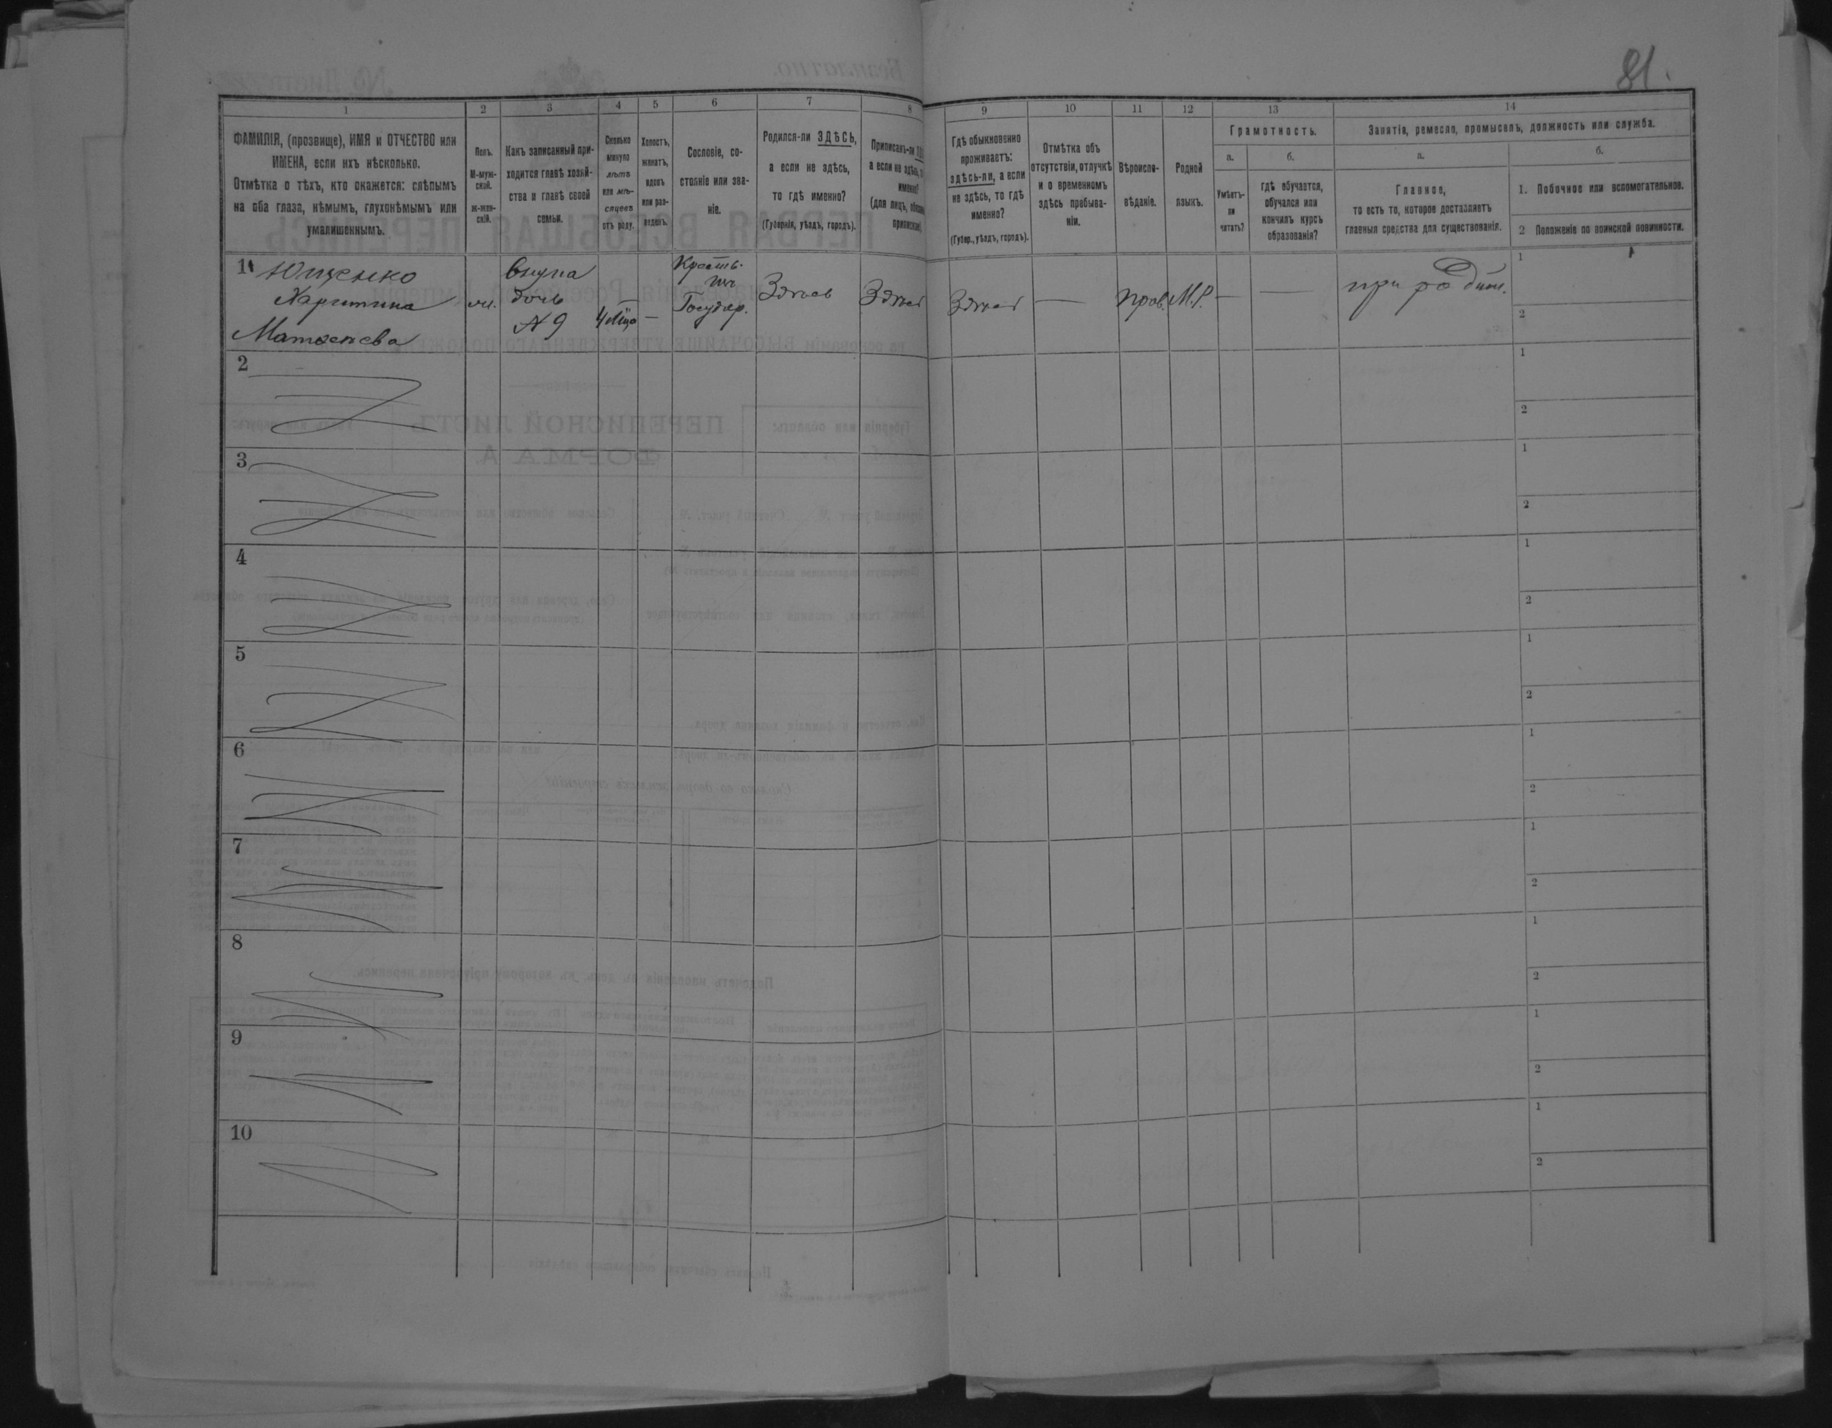 81.
1
2
3
4
5
6
7
8
9
10
11
12
13
14
ФАМИЛІЯ, (прозвище), ИМЯ и ОТЧЕСТВО или
ИМЕНА, если ихъ нѣсколько.
Отмѣтка о тѣхъ, кто окажется: слѣпымъ
на оба глаза, нѣмымъ, глухонѣмымъ или
умалишеннымъ.
Полъ.
М-муж-
ской.
ж-жен-
скій.
Какъ записанный при-
ходится главѣ хозяй-
ства и главѣ своей
семьи.
Сколько
минуло
лѣтъ
или мѣ-
сяцевъ
отъ роду.
Холостъ,
женатъ,
вдовъ
или раз-
веденъ.
Сословіе, со-
стояніе или зва-
ніе.
Родился-ли ЗДѢСЬ,
а если не здѣсь,
то гдѣ именно?
(Губернія, уѣздъ, городъ).
Приписанъ-ли
а если не здѣсь,
именно?
(для лицъ,
Гдѣ обыкновенно
проживаетъ:
здѣсь-ли, а если
не здѣсь, то гдѣ
именно?
(Губер., уѣздъ, городъ).
Отмѣтка объ
отсутствіи, отлучкѣ
и о временномъ
здѣсь пребыва-
ніи.
Вѣроиспо-
вѣданіе.
Родной
языкъ.
Грамотность.
а.
Умѣетъ-
ли
читать?
б.
гдѣ обучается,
обучался или
кончилъ курсъ
образованія?
Занятія, ремесло, промыселъ, должность или служба.
а.
Главное,
то есть то, которое доставляетъ
главныя средства для существованія.
б.
1. Побочное или вспомогательное.
2 Положеніе по воинской повинности.
1
Ющенко
Харитина
Матвѣева
дочь
№ 9
4 Мѣс
—
Крестья-
Государ.
Здѣсь
Здѣсь
Здѣсь
—
прав.
М.Р.
—
—
при родит.
1
2
2
1
2
3
1
2
4
1
2
5
1
2
6
1
2
7
1
2
8
1
2
9
1
2
10
1
2